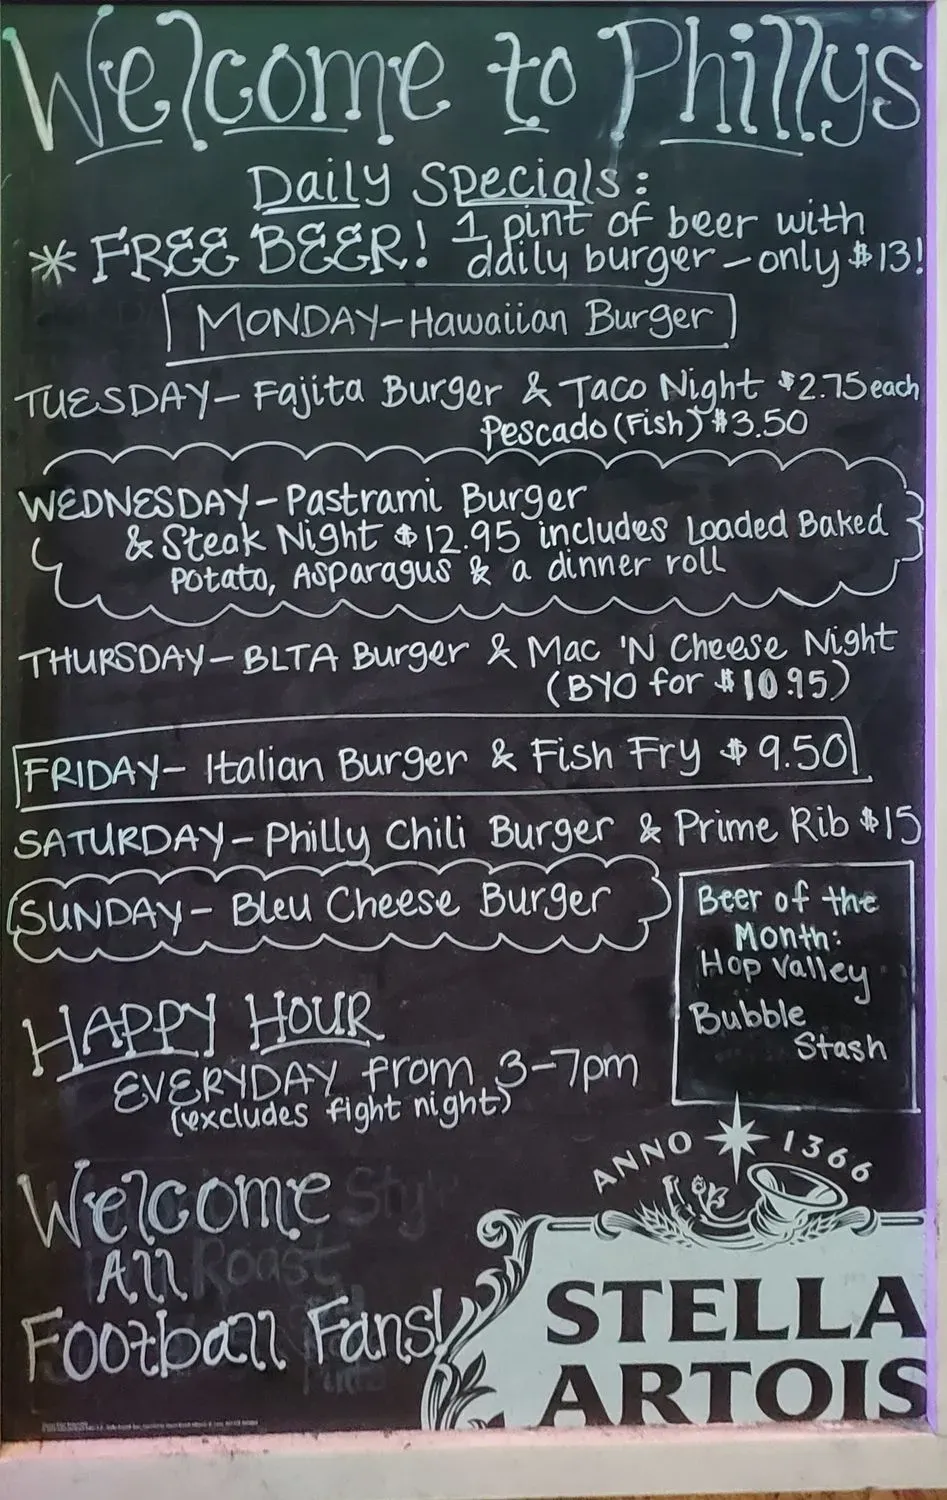 Welcome to Phillys
Daily Specials:
* FREE BEER! 1 pint of beer with
daily burger - only $13!
MONDAY - Hawaiian Burger
TUESDAY - Fajita Burger & Taco Night $2.75 each
Pescado (Fish) $3.50
WEDNESDAY - Pastrami Burger
& Steak Night $12.95 includes Loaded Baked
Potato, Asparagus & a dinner roll
THURSDAY - BLTA Burger & Mac 'N Cheese Night
(BYO for $10.95)
FRIDAY - Italian Burger & Fish Fry $9.50
SATURDAY - Philly Chili Burger & Prime Rib $15
SUNDAY - Bleu Cheese Burger
Beer of the
Month:
Hop Valley
Bubble
Stash
HAPPY HOUR
EVERYDAY from 3-7pm
(excludes fight night)
Welcome
All
Football Fans!
ANNO 1366
STELLA
ARTOIS